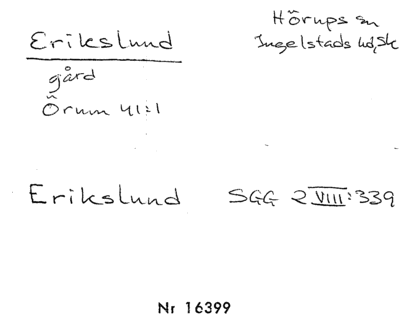 Erikslund
Hörups sn
Ingelstads hd, Sk
gård
Örum 41:1
Erikslund
SGG 2 VIII:339
Nr 16399